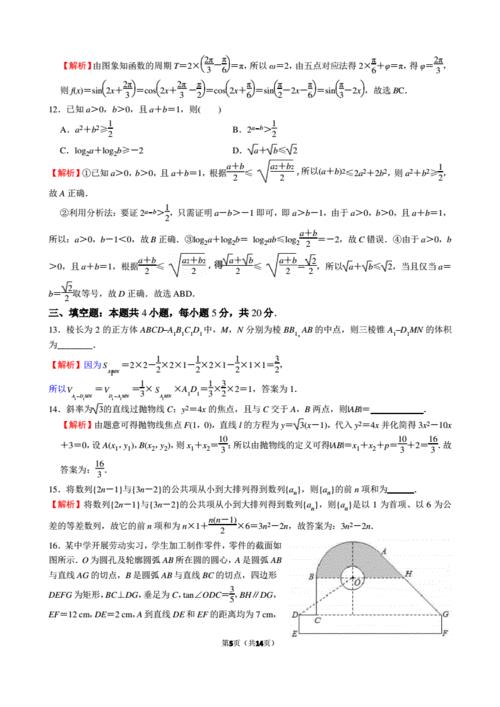 【解析】由图象知函数的周期 T=2×(2π/3-π/6)=π,所以 ω=2,由五点对应法得 2×π/6+φ=π,得 φ=2π/3,
则 f(x)=sin(2x+2π/3)=cos(2x+2π/3-π/2)=cos(2x+π/6)=sin(π/2-2x-π/6)=sin(π/3-2x),故选 BC.
12.已知 a>0,b>0,且 a+b=1,则( )
A.a²+b²≥1/2 B.2ᵃ⁻ᵇ>1/2
C.log₂a+log₂b≥-2 D.√a+√b≤√2
【解析】①已知 a>0,b>0,且 a+b=1,根据 a+b/2≤√a2+b2/2,所以(a+b)2≤2a²+2b²,则 a²+b²≥1/2,
故 A 正确.
②利用分析法:要证 2ᵃ⁻ᵇ>1/2,只需证明 a-b>-1 即可,即 a>b-1,由于 a>0,b>0,且 a+b=1,
所以:a>0,b-1<0,故 B 正确.③log₂a+log₂b= log₂ab≤log₂ a+b/2=-2,故 C 错误.④由于 a>0,b
>0,且 a+b=1,根据 a+b/2≤√a2+b2/2,得 √a+√b/2≤√a+b/2=√2/2,所以 √a+√b≤√2,当且仅当 a=
b=√2/2取等号,故 D 正确.故选 ABD.
三、填空题:本题共 4 小题,每小题 5 分,共 20 分.
13.棱长为 2 的正方体 ABCD-A₁B₁C₁D₁ 中,M,N 分别为棱 BB₁、AB 的中点,则三棱锥 A₁-D₁MN 的体积
为________.
【解析】因为 S A₁MN=2×2-1/2×2×1-1/2×2×1-1/2×1×1=3/2,
所以 V A₁-D₁MN=V D₁-A₁MN=1/3×S A₁MN×A₁D₁=1/3×3/2×2=1,答案为 1.
14.斜率为√3的直线过抛物线 C:y²=4x 的焦点,且与 C 交于 A,B 两点,则|AB|=____________.
【解析】由题意可得抛物线焦点 F(1,0),直线 l 的方程为 y=√3(x-1),代入 y²=4x 并化简得 3x²-10x
+3=0,设 A(x₁,y₁),B(x₂,y₂),则 x₁+x₂=10/3;所以由抛物线的定义可得|AB|=x₁+x₂+p=10/3+2=16/3.故
答案为:16/3.
15.将数列{2n-1}与{3n-2}的公共项从小到大排列得到数列{aₙ},则{aₙ}的前 n 项和为______.
【解析】将数列{2n-1}与{3n-2}的公共项从小到大排列得到数列{aₙ},则{aₙ}是以 1 为首项、以 6 为公
差的等差数列,故它的前 n 项和为 n×1+n(n-1)/2×6=3n²-2n,故答案为:3n²-2n.
16.某中学开展劳动实习,学生加工制作零件,零件的截面如
图所示.O 为圆孔及轮廓圆弧 AB 所在圆的圆心,A 是圆弧 AB
与直线 AG 的切点,B 是圆弧 AB 与直线 BC 的切点,四边形
DEFG 为矩形,BC⊥DG,垂足为 C,tan∠ODC=3/5,BH∥DG,
EF=12 cm,DE=2 cm,A 到直线 DE 和 EF 的距离均为 7 cm,
A
B
O
H
D
C
G
E
F
第5页(共14页)